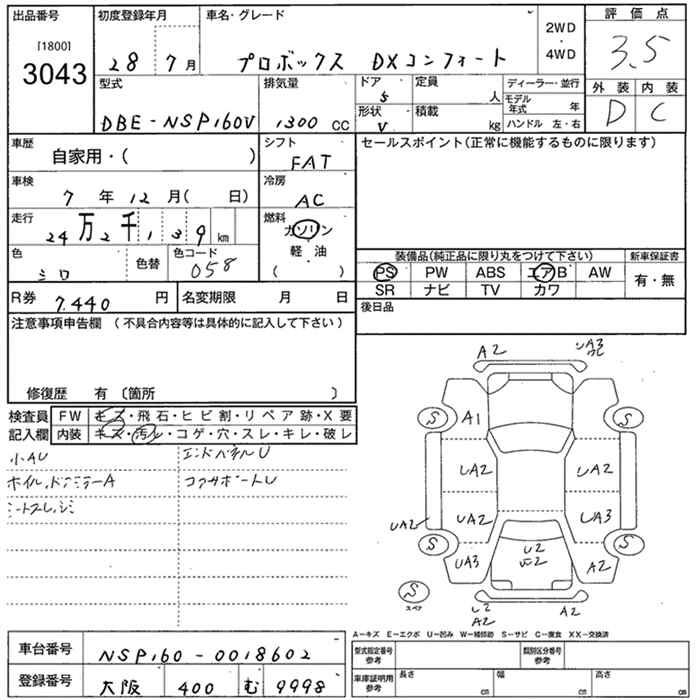 出品番号 初度登録年月 車名・グレード 2WD・4WD 評価点
[1800] 3043 28 7月 プロボックス DXコンフォート 3.5
型式 排気量 ドア 定員 ディーラー・並行 外装 内装
DBE-NSP160V 1300 CC 5 人 モデル年式 年 D C
形状 積載 ハンドル 左・右
V kg
車歴 シフト セールスポイント(正常に機能するものに限ります)
自家用・( ) FAT
車検 冷房
7年12月( 日) AC
走行 燃料
24万2千139km ガソリン
軽・油
( )
色 色替 色コード
シロ 058
装備品(純正品に限り丸をつけて下さい) 新車保証書
PS PW ABS エアB AW 有・無
SR ナビ TV カワ
R券 7.440 円 名変期限 月 日 後日品
注意事項申告欄 (不具合内容等は具体的に記入して下さい)
修復歴 有 〔箇所 〕
検査員 FW キズ・飛石・ヒビ割・リペア跡・X要
記入欄 内装 キズ・汚レ・コゲ・穴・スレ・キレ・破レ
小AU エンドパネルU
コアサポートU
A2 UA3
S A1 S
UA2 UA2
UA2 UA2 UA3
S UA3 U2 A2 S
S スペア
U2 A2 A2
A-キズ E-エクボ U-凹み W-補修跡 S-サビ C-腐食 XX-交換済
車台番号 NSP160-0018602 型式指定番号 参考 類別区分番号 参考
登録番号 大阪 400 む 9998 車庫証明用 参考 長さ cm 幅 cm 高さ cm